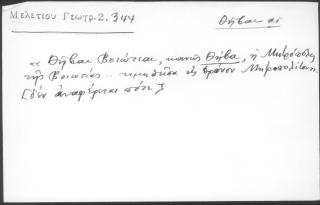 Μελετίου Γεωγρ. 2, 344
Θῆβαι αἱ
« Θῆβαι Βοιωτίαι, κοινῶς Θήβα, ἡ Μητρόπολις
τῆς Βοιωτίας .. τιμηθεῖσα εἰς θρόνον Μητροπολίτου
[δὲν ἀναφέρεται πότε]